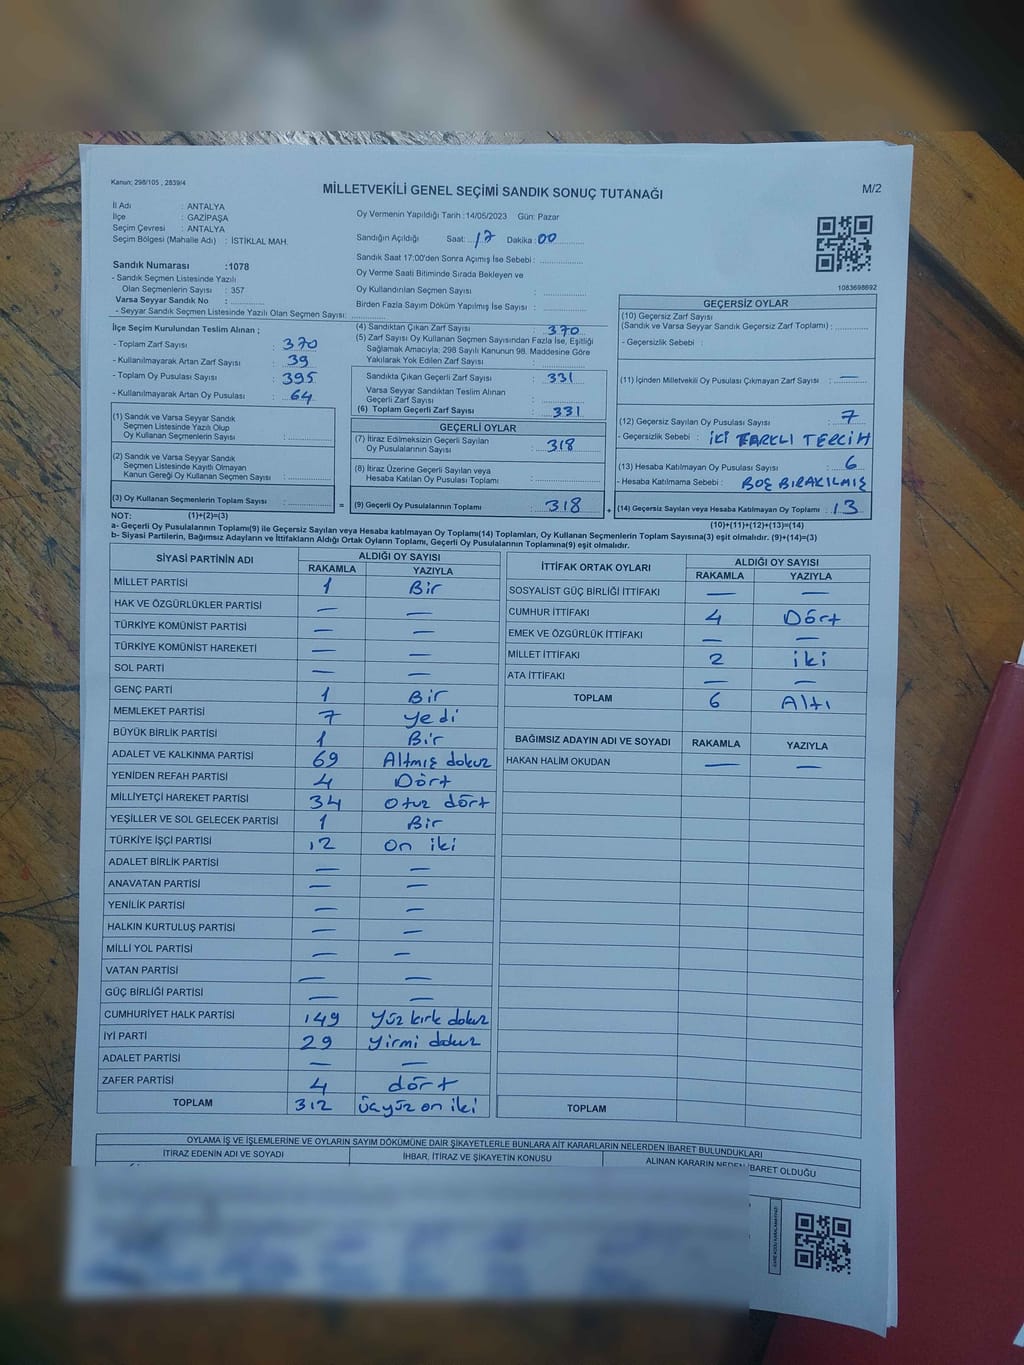 Kanun; 298/105 , 2839/4
MİLLETVEKİLİ GENEL SEÇİMİ SANDIK SONUÇ TUTANAĞI
M/2
İl Adı : ANTALYA
İlçe : GAZİPAŞA
Seçim Çevresi : ANTALYA
Seçim Bölgesi (Mahalle Adı) : İSTİKLAL MAH.
Oy Vermenin Yapıldığı Tarih :14/05/2023 Gün: Pazar
Sandığın Açıldığı Saat: 17 Dakika : 00
Sandık Saat 17:00'den Sonra Açımış İse Sebebi :
Oy Verme Saati Bitiminde Sırada Bekleyen ve
Oy Kullandırılan Seçmen Sayısı :
Birden Fazla Sayım Döküm Yapılmış İse Sayısı :
Sandık Numarası :1078
- Sandık Seçmen Listesinde Yazılı
Olan Seçmenlerin Sayısı : 357
Varsa Seyyar Sandık No :
- Seyyar Sandık Seçmen Listesinde Yazılı Olan Seçmen Sayısı:
1083698692
İlçe Seçim Kurulundan Teslim Alınan ;
- Toplam Zarf Sayısı : 370
- Kullanılmayarak Artan Zarf Sayısı : 39
- Toplam Oy Pusulası Sayısı : 395
- Kullanılmayarak Artan Oy Pusulası : 64
(1) Sandık ve Varsa Seyyar Sandık
Seçmen Listesinde Yazılı Olup
Oy Kullanan Seçmenlerin Sayısı :
(2) Sandık ve Varsa Seyyar Sandık
Seçmen Listesinde Kayıtlı Olmayan
Kanun Gereği Oy Kullanan Seçmen Sayısı :
(3) Oy Kullanan Seçmenlerin Toplam Sayısı :
(4) Sandıktan Çıkan Zarf Sayısı : 370
(5) Zarf Sayısı Oy Kullanan Seçmen Sayısından Fazla İse, Eşitliği
Sağlamak Amacıyla; 298 Sayılı Kanunun 98. Maddesine Göre
Yakılarak Yok Edilen Zarf Sayısı :
Sandıkta Çıkan Geçerli Zarf Sayısı : 331
Varsa Seyyar Sandıktan Teslim Alınan
Geçerli Zarf Sayısı :
(6) Toplam Geçerli Zarf Sayısı : 331
GEÇERLİ OYLAR
(7) İtiraz Edilmeksizin Geçerli Sayılan
Oy Pusulalarının Sayısı : 318
(8) İtiraz Üzerine Geçerli Sayılan veya
Hesaba Katılan Oy Pusulası Toplamı :
= (9) Geçerli Oy Pusulalarının Toplamı : 318
GEÇERSİZ OYLAR
(10) Geçersiz Zarf Sayısı
(Sandık ve Varsa Seyyar Sandık Geçersiz Zarf Toplamı) :
- Geçersizlik Sebebi :
(11) İçinden Milletvekili Oy Pusulası Çıkmayan Zarf Sayısı : —
(12) Geçersiz Sayılan Oy Pusulası Sayısı : 7
- Geçersizlik Sebebi : İKİ FARKLI TERCİH
(13) Hesaba Katılmayan Oy Pusulası Sayısı : 6
- Hesaba Katılmama Sebebi : BOŞ BIRAKILMIŞ
+ (14) Geçersiz Sayılan veya Hesaba Katılmayan Oy Toplamı : 13
NOT: (1)+(2)=(3)
(10)+(11)+(12)+(13)=(14)
a- Geçerli Oy Pusulalarının Toplamı(9) ile Geçersiz Sayılan veya Hesaba katılmayan Oy Toplamı(14) Toplamları, Oy Kullanan Seçmenlerin Toplam Sayısına(3) eşit olmalıdır. (9)+(14)=(3)
b- Siyasi Partilerin, Bağımsız Adayların ve İttifakların Aldığı Ortak Oyların Toplamı, Geçerli Oy Pusulalarının Toplamına(9) eşit olmalıdır.
SİYASİ PARTİNİN ADI ALDIĞI OY SAYISI
RAKAMLA YAZIYLA
MİLLET PARTİSİ 1 Bir
HAK VE ÖZGÜRLÜKLER PARTİSİ — —
TÜRKİYE KOMÜNİST PARTİSİ — —
TÜRKİYE KOMÜNİST HAREKETİ — —
SOL PARTİ — —
GENÇ PARTİ 1 Bir
MEMLEKET PARTİSİ 7 yedi
BÜYÜK BİRLİK PARTİSİ 1 Bir
ADALET VE KALKINMA PARTİSİ 69 Altmış dokuz
YENİDEN REFAH PARTİSİ 4 Dört
MİLLİYETÇİ HAREKET PARTİSİ 34 otuz dört
YEŞİLLER VE SOL GELECEK PARTİSİ 1 Bir
TÜRKİYE İŞÇİ PARTİSİ 12 on iki
ADALET BİRLİK PARTİSİ — —
ANAVATAN PARTİSİ — —
YENİLİK PARTİSİ — —
HALKIN KURTULUŞ PARTİSİ — —
MİLLİ YOL PARTİSİ — —
VATAN PARTİSİ — —
GÜÇ BİRLİĞİ PARTİSİ — —
CUMHURİYET HALK PARTİSİ 149 Yüz kırk dokuz
İYİ PARTİ 29 yirmi dokuz
ADALET PARTİSİ — —
ZAFER PARTİSİ 4 dört
TOPLAM 312 üçyüz on iki
İTTİFAK ORTAK OYLARI ALDIĞI OY SAYISI
RAKAMLA YAZIYLA
SOSYALİST GÜÇ BİRLİĞİ İTTİFAKI — —
CUMHUR İTTİFAKI 4 Dört
EMEK VE ÖZGÜRLÜK İTTİFAKI — —
MİLLET İTTİFAKI 2 iki
ATA İTTİFAKI — —
TOPLAM 6 Altı
BAĞIMSIZ ADAYIN ADI VE SOYADI RAKAMLA YAZIYLA
HAKAN HALİM OKUDAN — —
TOPLAM
OYLAMA İŞ VE İŞLEMLERİNE VE OYLARIN SAYIM DÖKÜMÜNE DAİR ŞİKAYETLERLE BUNLARA AİT KARARLARIN NELERDEN İBARET BULUNDUKLARI
İTİRAZ EDENİN ADI VE SOYADI İHBAR, İTİRAZ VE ŞİKAYETİN KONUSU ALINAN KARARIN NEDEN İBARET OLDUĞU